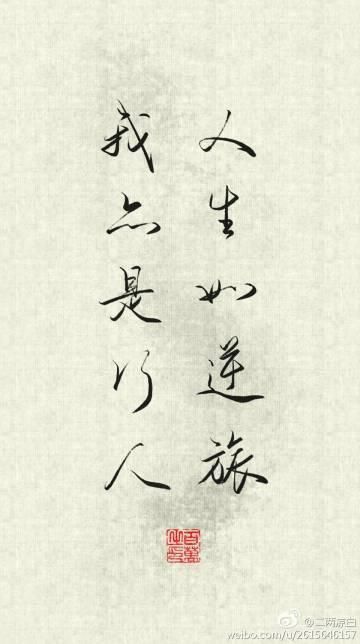 人生如逆旅
我亦是行人
@二两原白
weibo.com/u/2615646157